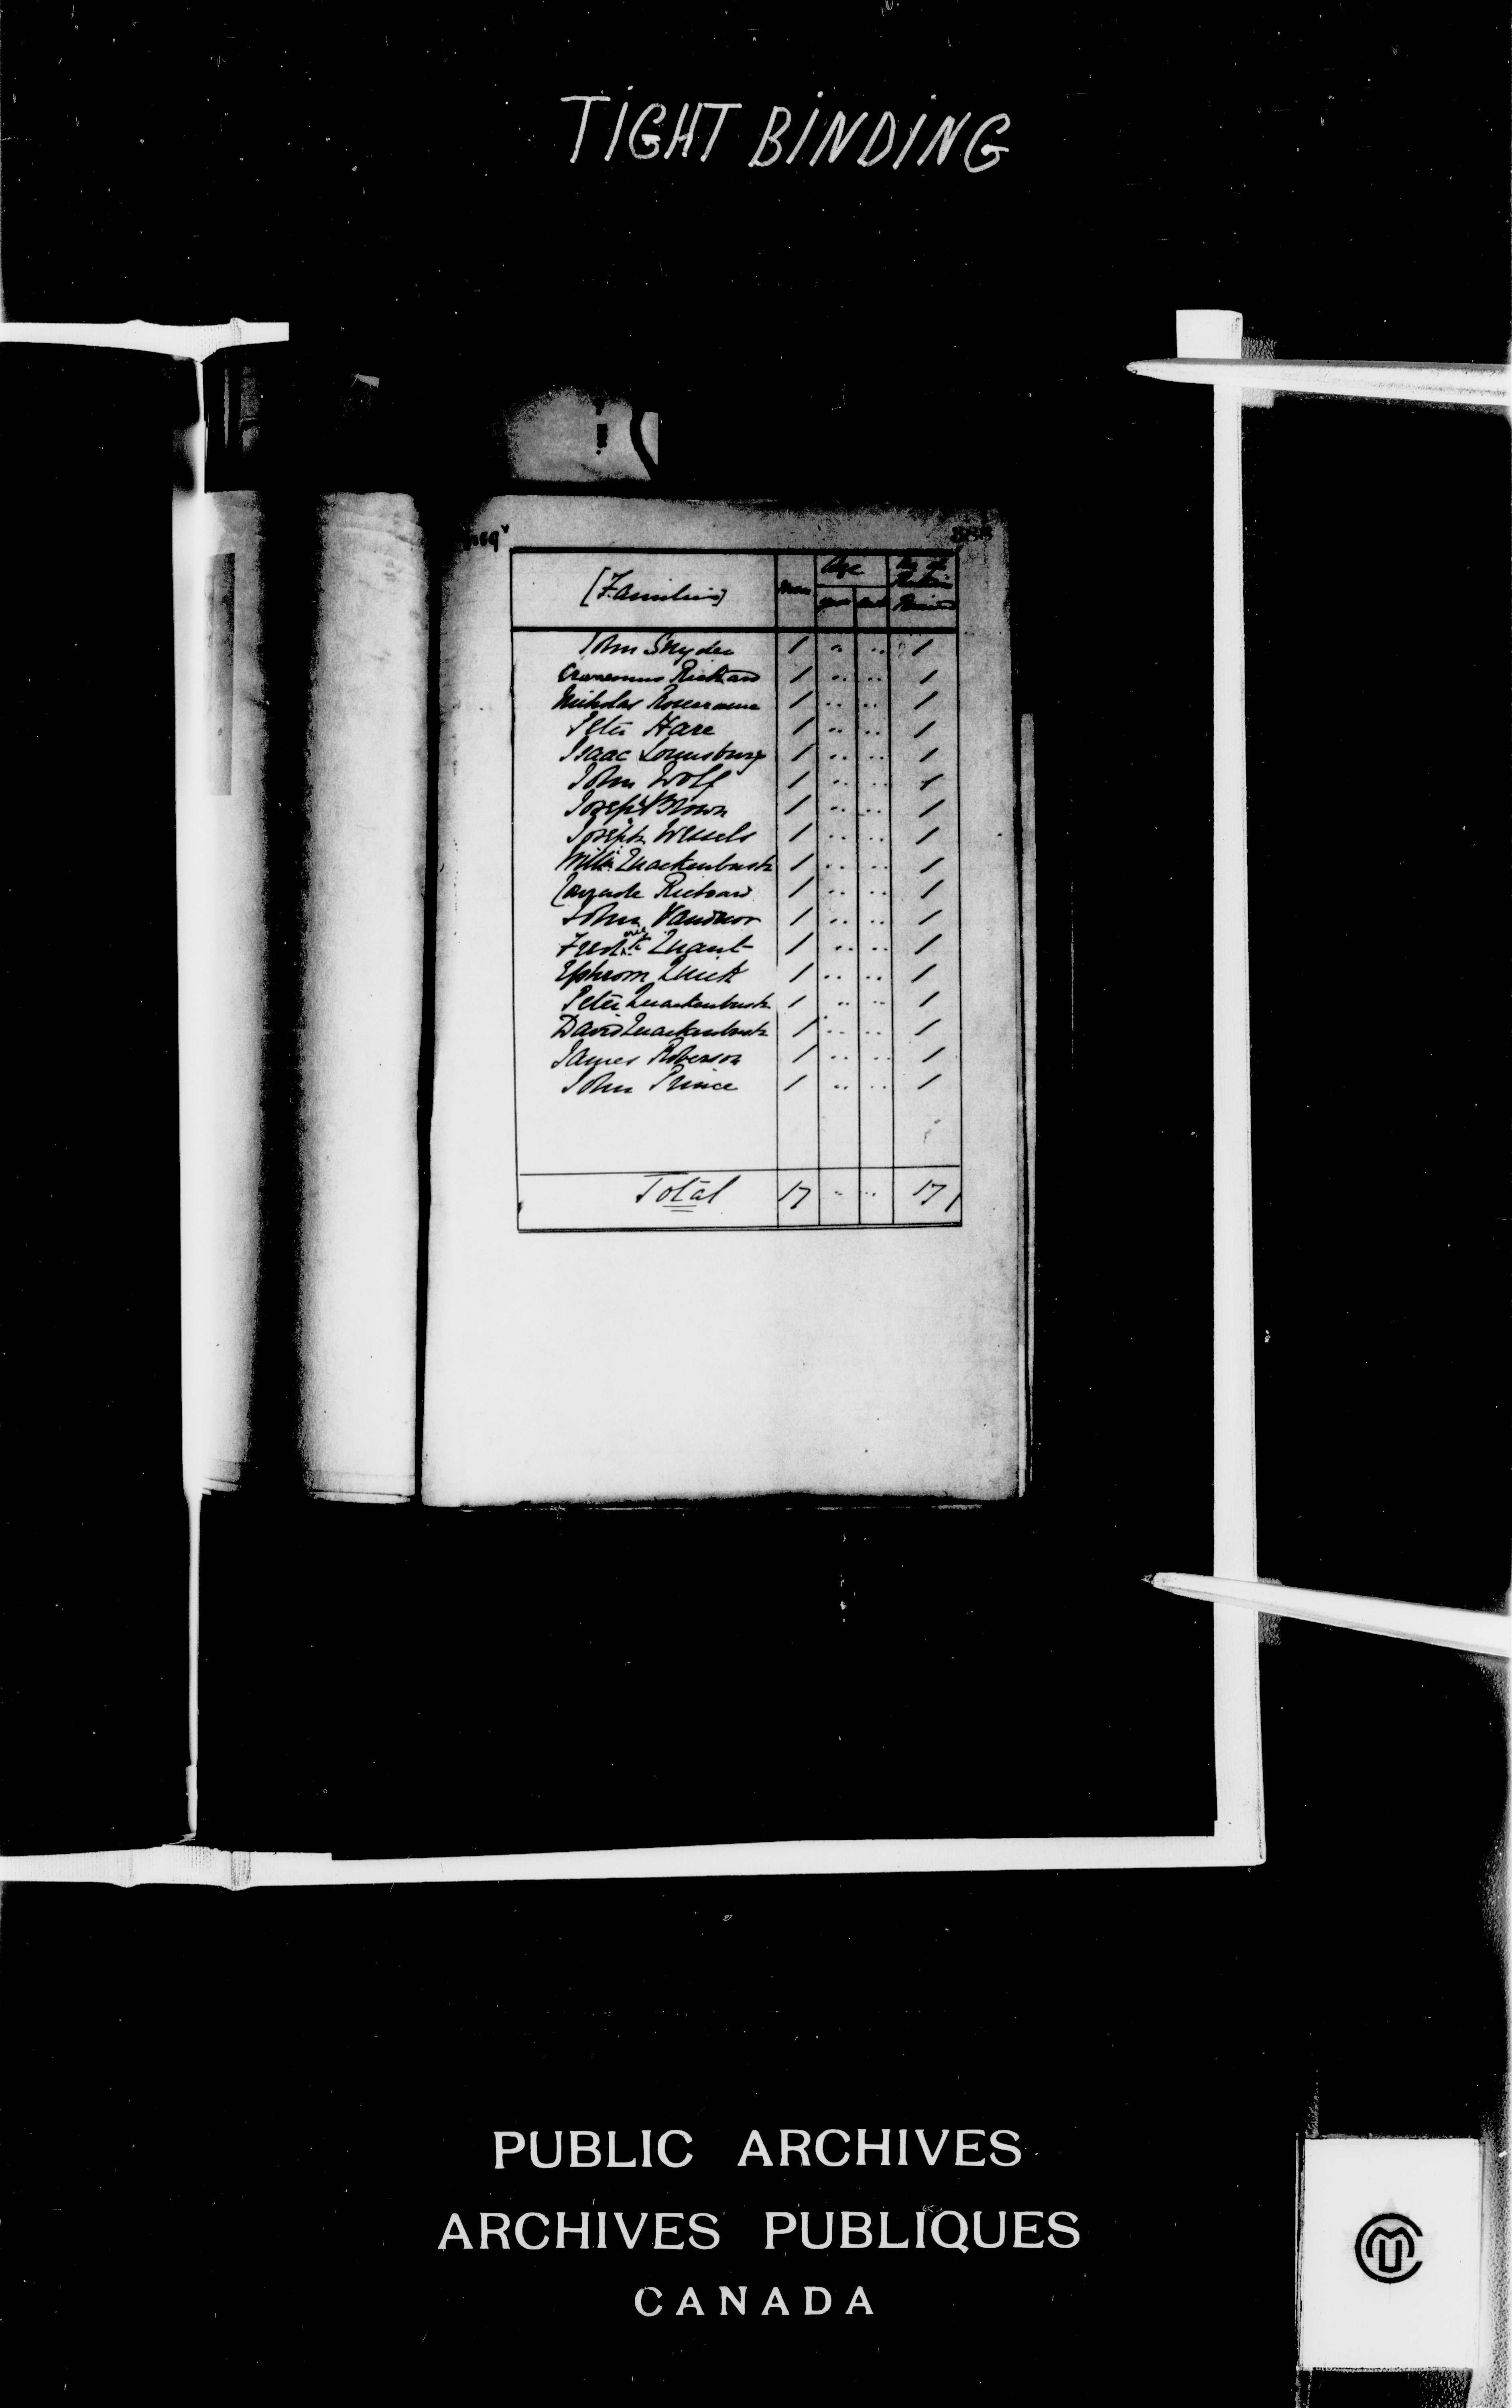 TIGHT BINDING
[Families] Age No of
John Snyder 1 .. .. 1
Rickard 1 .. .. 1
Nicholas 1 .. .. 1
Peter Hare 1 .. .. 1
Isaac Lounsbury 1 .. .. 1
John Wolf 1 .. .. 1
Joseph Brown 1 .. .. 1
Joseph Wessels 1 .. .. 1
Willm Quackenbush 1 .. .. 1
Rickard 1 .. .. 1
John 1 .. .. 1
Quant 1 .. .. 1
Ephrom Quick 1 .. .. 1
Peter Quackenbush 1 .. .. 1
David Quackenbush 1 .. .. 1
James Roberson 1 .. .. 1
John Prince 1 .. .. 1
Total 17 .. .. 17
PUBLIC ARCHIVES
ARCHIVES PUBLIQUES
CANADA